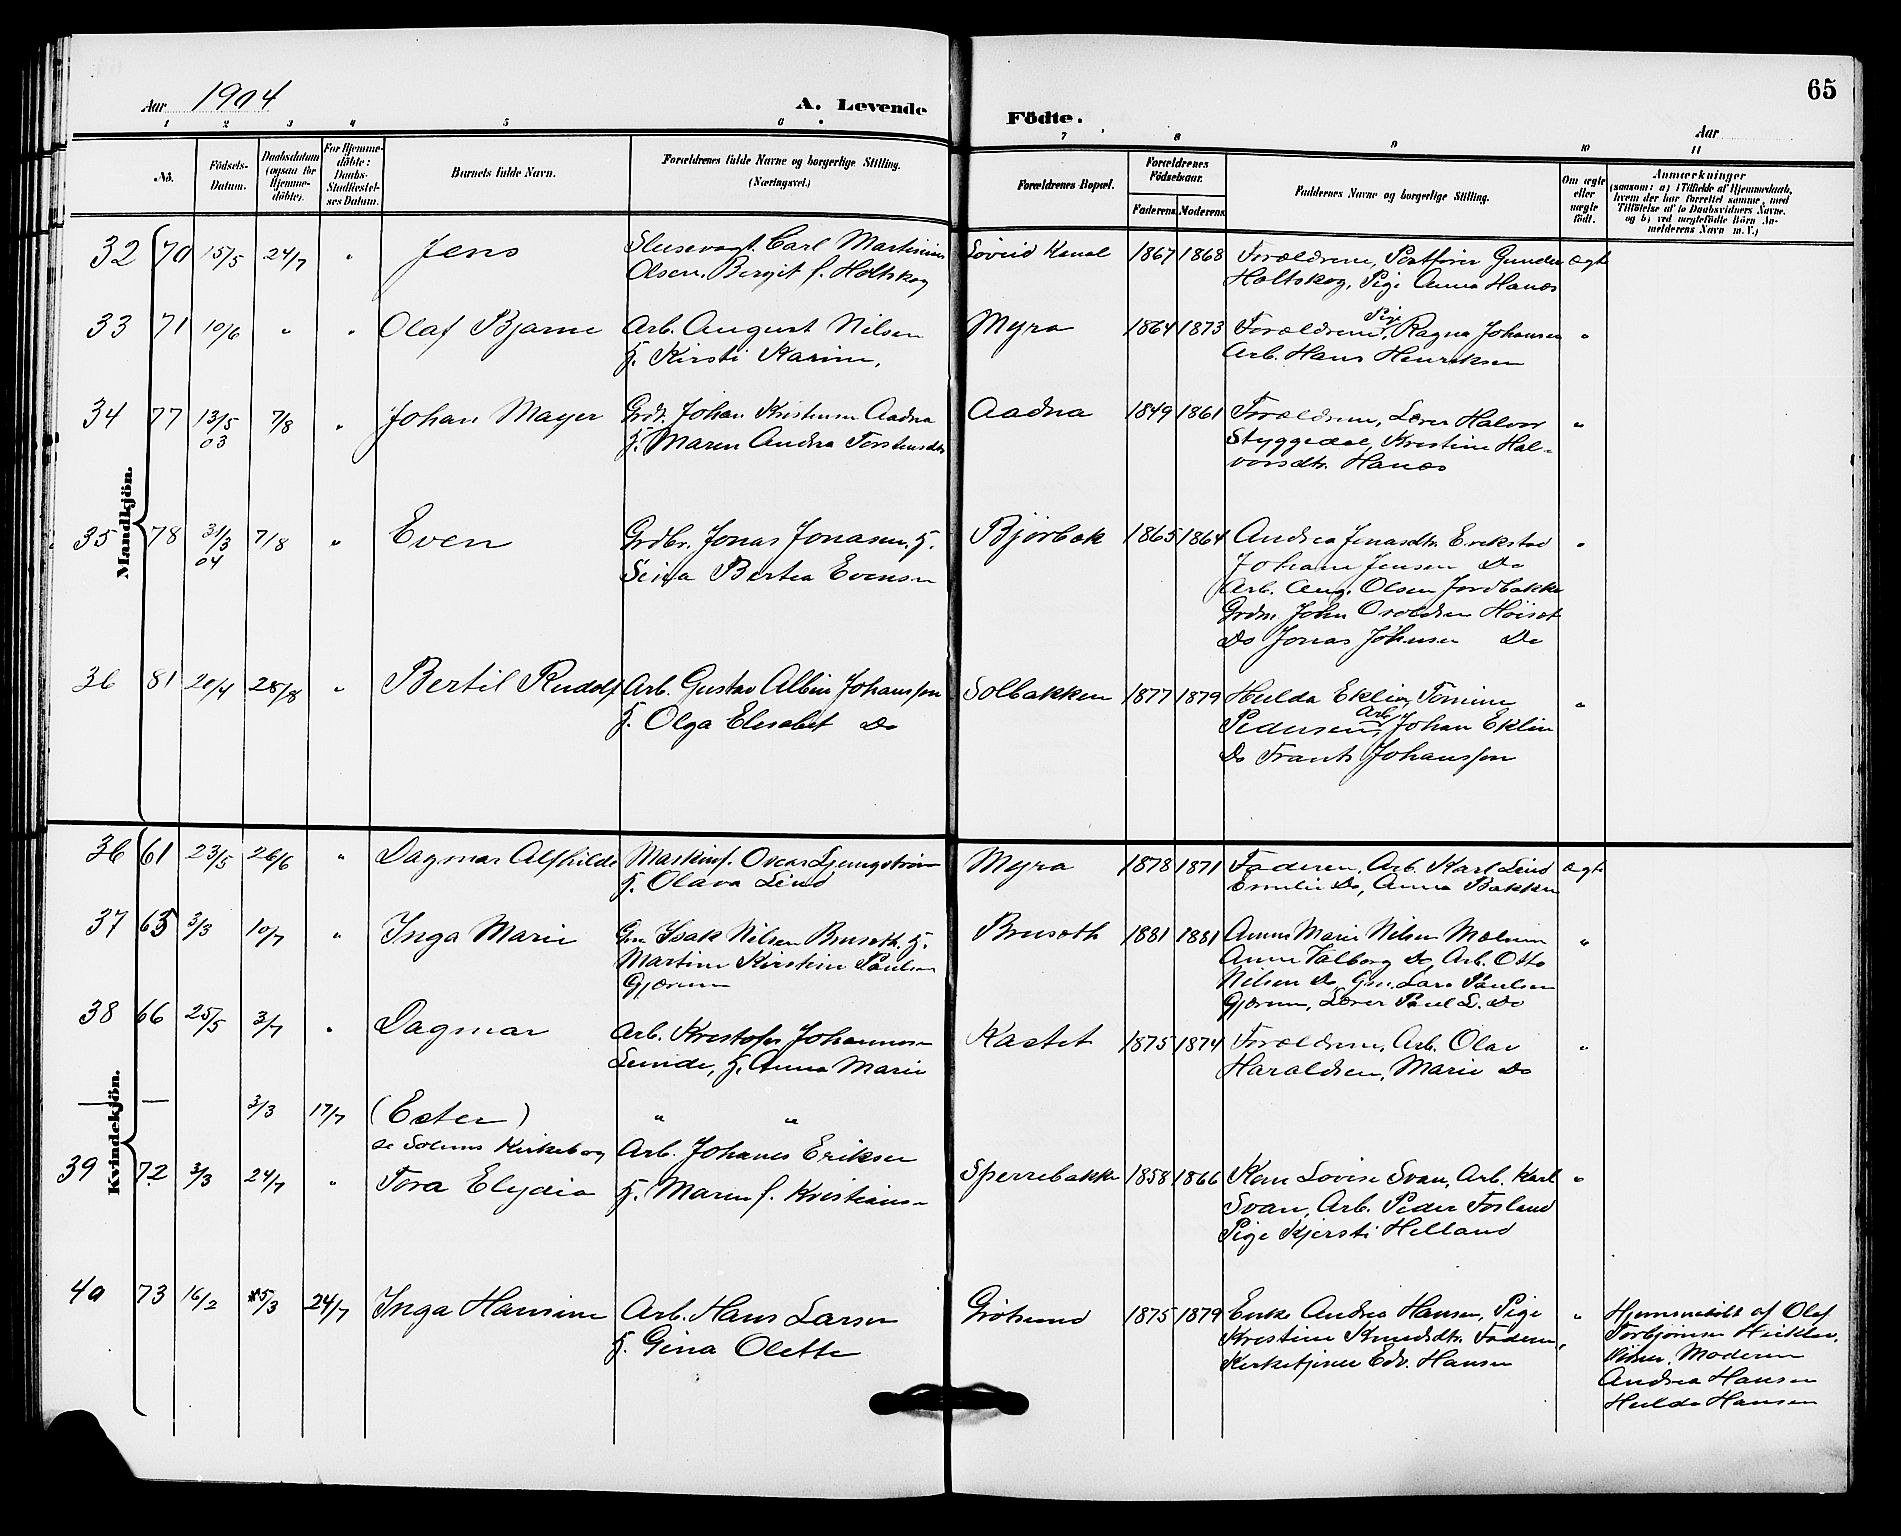 65
Aar 1904
A. Levende
Födte.
Aar
1 2 3 4 5 6 7 8 9 10 11
No.
Födsels-Datum.
Daabsdatum (ogsaa for Hjemme-döbte).
For Hjemme-döbte: Daabs-Stadfæstel-ses Datum.
Barnets fulde Navn.
Forældrenes fulde Navne og borgerlige Stilling.
(Næringsvei.)
Forældrenes Bopæl.
Forældrenes Födselsaar.
Faderens. Moderens.
Faddernes Navne og borgerlige Stilling.
Om ægte eller uægte födt.
Anmærkninger
(saasom: a) i Tilfælde af Hjemmedaab,
hvem der har forrettet samme, med
Tilföielse af to Daabsvidners Navne.
og b) ved uægtefödte Börn An-
melderens Navn m. V.)
Mandkjön.
32 70 15/5 24/7 " Jens
Slusevagt Carl Martinius
Olsen, Bergit f. Holtskog
Löveid Kanal 1867 1868
Forældrene, Gunder
Holtskog, Pige Anna Hanes
ægte
33 71 10/6 " " Olaf Bjarne
Arb. August Nilsen
H. Kirsti Karine,
Myra 1864 1873
Pige
Forældrene, Ragna Johansen
Arb. Hans Henriksen
"
34 77 13/5 03 7/8 " Johan Mayer
Grdr. Johan Kristensen Aadna
H. Maren Andrea Torstensdtr
Aadna 1849 1861
Forældrene, Lærer Halvor
Styggedal, Kristine Hal-
vorsdtr. Hanes
"
35 78 31/3 04 7/8 " Even
Grdbr. Jonas Jonasen H.
Bertea Evensen
Björbæk 1865 1864
Andrea Jonasdtr. Erekstad
Johan Jensen Do
Arb. Aug. Olsen Jordbakke
Grdm. John Höiset
Do Jonas Johnsen Do
"
36 81 20/4 28/8 " Bertil Rudolf
Arb. Gustav Albin Johansson
H. Olga Elisabet Do
Solbakken 1877 1879
Hulda Eklin, Tomine
Arb.
Pedersen, Johan Eklin
Do Frants Johansson
"
Kvindekjön.
36 61 23/5 26/6 " Dagmar Alfhilde
Maskinf. Oscar Ljungström
H. Olava Lind
Myra 1878 1871
Faderen, Arb. Karl Lind
Emilie Do, Anna Bakken
ægte
37 63 3/3 10/7 " Inga Marie
Gm. Isak Nilsen Bruseth. H.
Martine Kirstine Paulsen
Gjærum
Bruseth 1881 1881
Anne Marie Nilsen Mælum
Anne Valborg Do, Arb. Otto
Nilsen Do, Gm. Lars Paulsen
Gjærum, Lærer Paul L. Do
"
38 66 25/5 3/7 " Dagmar
Arb. Kristofer Johannesen
Lunde, H. Anna Marie
Kastet 1875 1874
Forældrene, Arb. Olav
Haraldsen, Marie Do
"
— — 3/3 17/7 (Ester) " "
se Solums Kirkebog
39 72 3/3 24/7 " Tora Elydia
Arb. Johanes Eriksen
H. Maren f. Kristiansen
Sperrebakke 1858 1866
Kone Lovise Svan, Arb. Karl
Svan, Arb. Peder Fosland
Pige Kjersti Helland
"
40 73 16/2 5/3 24/7 Inga Hansine
Arb. Hans Larsen
H. Gina Olette
Grötsund 1875 1879
Enke Andrea Hansen, Pige
Kristine Knudsdtr. Faderen,
Kirketjener Edv. Hansen
"
Hjemmedöbt af Olaf
Torbjörnsen Heikler.
Vitner. Moderen
Andrea Hansen
Hulda Hansen